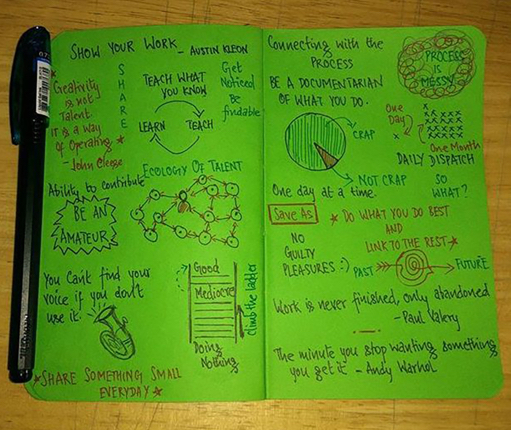 SHOW YOUR WORK - AUSTIN KLEON
SHARE
Creativity
is not
Talent
it is a way
of Operating.
- John Cleese
TEACH WHAT
YOU KNOW
LEARN
TEACH
Get
Noticed
Be
findable
ECOLOGY OF TALENT
Ability to contribute
BE AN
AMATEUR
You Can't find your
voice if you don't
use it.
Good
Mediocre
Doing
Nothing
Climb the ladder
SHARE SOMETHING SMALL
EVERYDAY
Connecting with the
PROCESS
BE A DOCUMENTARIAN
OF WHAT YOU DO.
PROCESS
IS
MESSY
CRAP
NOT CRAP
One
Day
One Month
DAILY DISPATCH
SO
WHAT?
One day at a time.
Save As
DO WHAT YOU DO BEST
AND
LINK TO THE REST
NO
GUILTY
PLEASURES :)
PAST
FUTURE
Work is never finished, only abandoned
- Paul Valery
The minute you stop wanting something
you get it - Andy Warhol